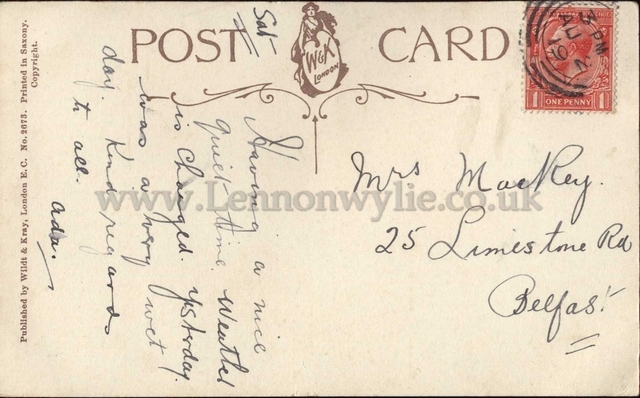 POST CARD
W&K
LONDON
Published by Wildt & Kray, London E.C. No. 2673. Printed in Saxony.
Copyright.
Sat
Having a nice
quiet time. Weather
is changed. yesterday
was a very wet
day. Kind regards
to all.
Ada.
Mrs Mackey.
25 Limestone Rd
Belfast
PM
AU
ONE PENNY
1 1
www.Lennonwylie.co.uk